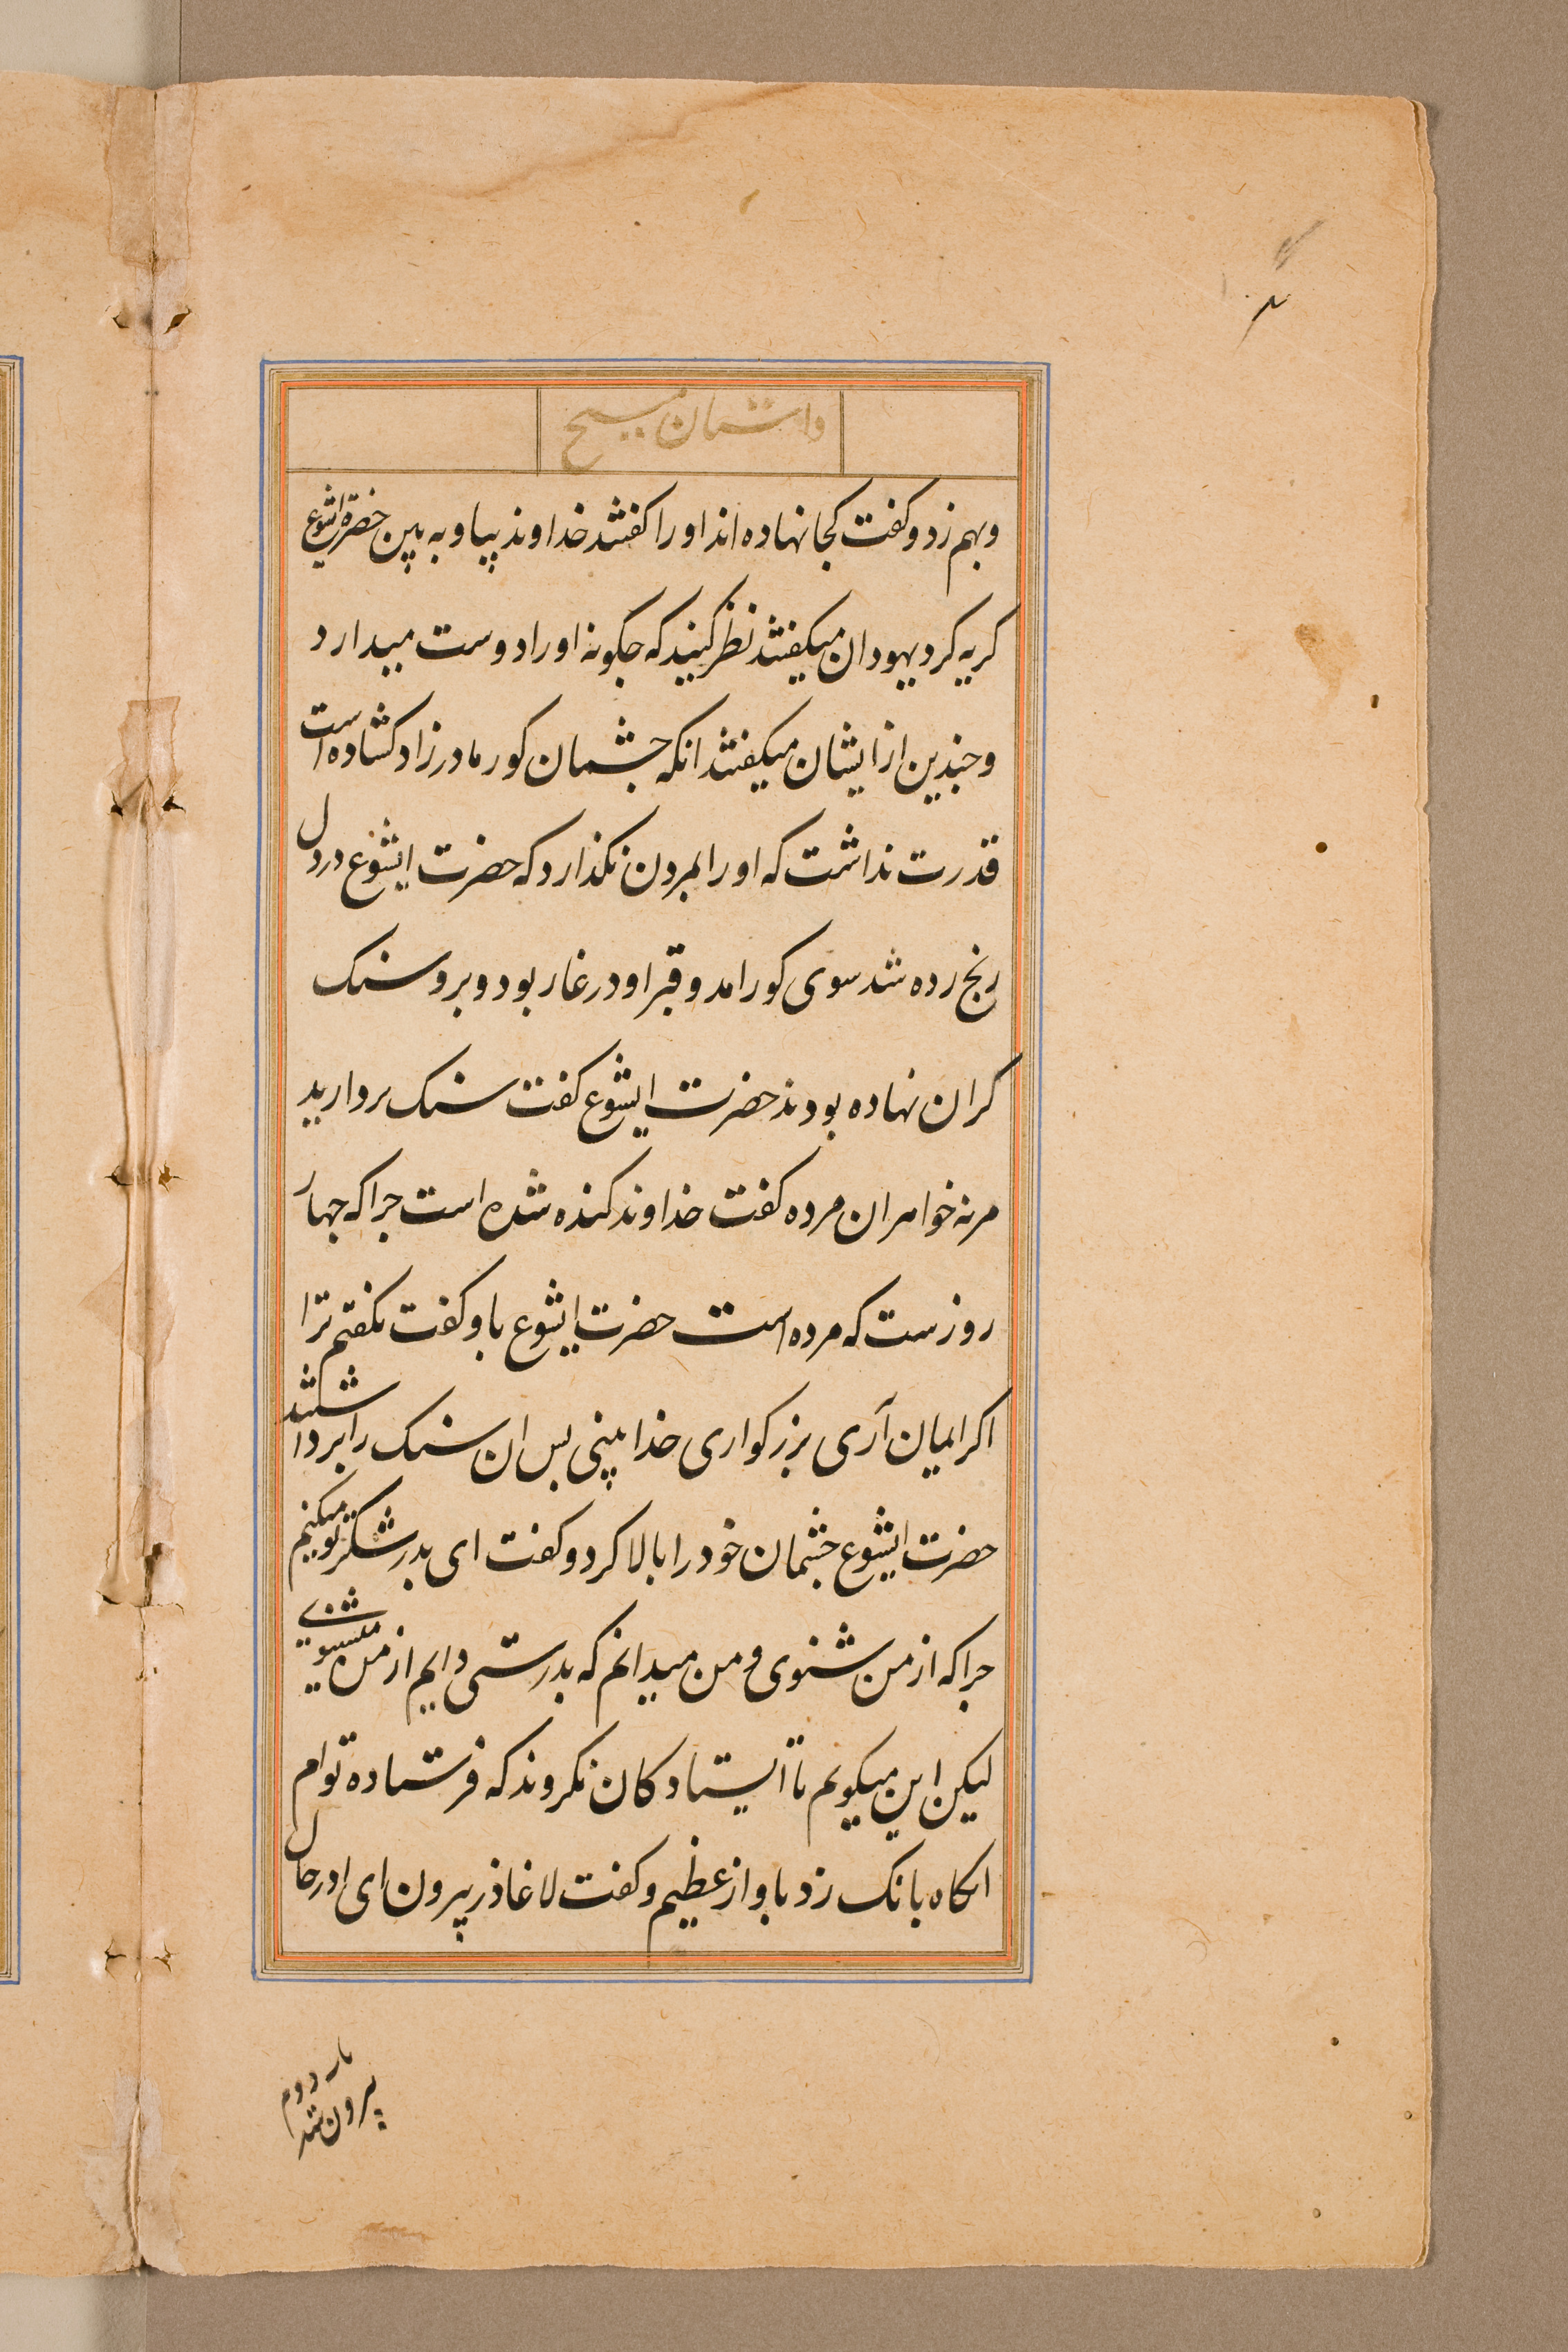 داستان مسیح
وبهم زد وکفت کجا نهاده اند اورا کفتند خداوند بیا و به بین حضرة ایشوع
کریه کرد یهودان میکفتند نظر کنید که جکونه اورا دوست میدارد
وجندین از ایشان میکفتند انکه جشمان کور مادرزاد کشاده است
قدرت نداشت که اورا بمردن نکذارد که حضرت ایشوع در دل
رنج زده شد سوی کور امد و قبر او در غار بود و برو سنک
کران نهاده بودند حضرت ایشوع کفت سنک بردارید
مرته خواهران مرده کفت خداوند کنده شده است جراکه جهار
روزست که مرده است حضرت ایشوع باو کفت نکفتم ترا
اکر ایمان آری بزرکواری خدا بینی بس ان سنک را برداشتند
حضرت ایشوع جشمان خود را بالا کرد و کفت ای بدر شکر تو میکنم
جراکه از من شنوی و من میدانم که بدرستی دایم از من میشنوی
لیکن این میکویم تا ایستادکان بکروند که فرستاده توام
انکاه بانک زد باواز عظیم و کفت لاغاذر بیرون ای درحال
بیرون شد